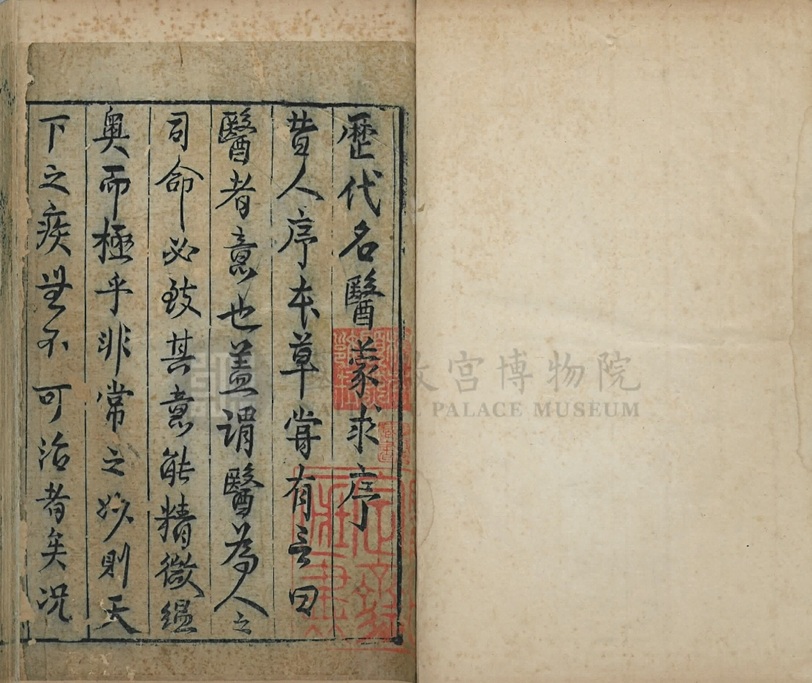 歷代名醫蒙求序
昔人序本草嘗有言曰
醫者意也蓋謂醫為人之
司命必致其意能精微縕
奧而極乎非常之妙則天
下之疾無不可治者矣況
故宮博物院
PALACE MUSEUM